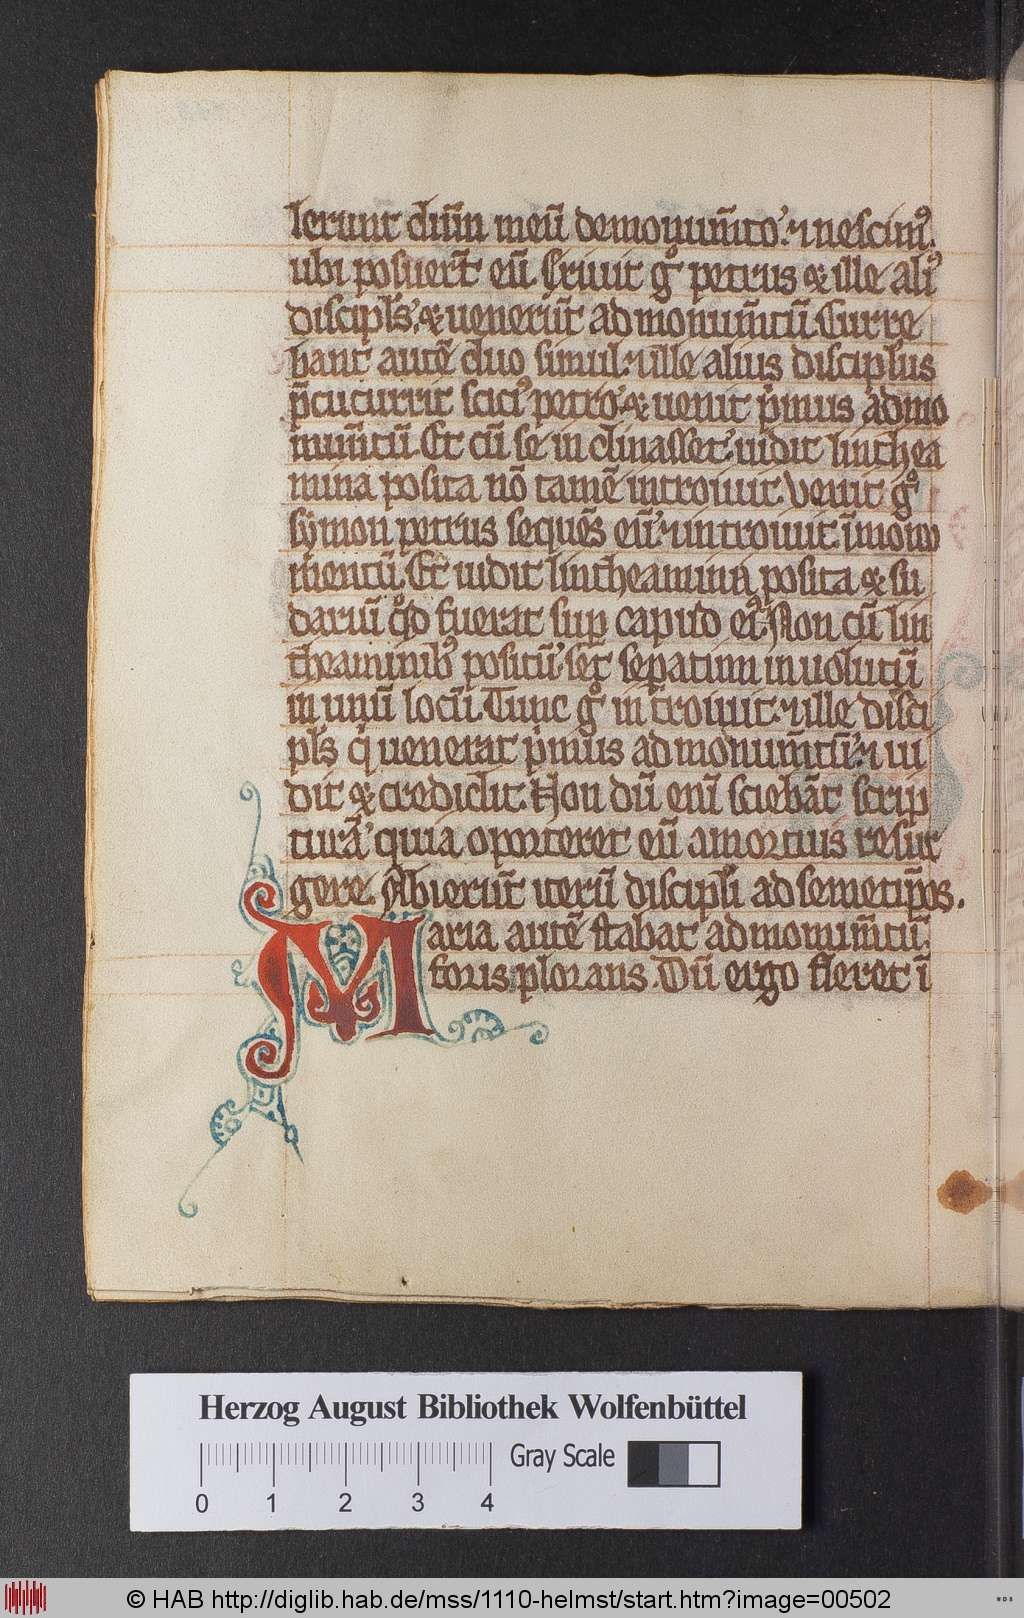 lerunt dn̄m meū de monum̄to. ⁊ nescimꝰ.
ubi posuer̄t eū Eriuit gͦ petrus & ille aliꝰ
discipl̄s. & uenerūt ad monum̄tū. Curre
bant autē duo simul. ⁊ ille alius disciplus
p̄cucurrit scicꝰ petro. & uenit p̍mus ad mo
num̄tū. Et cū se in clinasset. uidit linthea
mina posita nō tamē introiuit. Venit gͦ
sẏmon petrus sequēs eū. ⁊ introiuit ī monu
mentū. Et uidit lintheamina posita & su
dariū qͦd fuerat suꝑ capud eiꝰ. Non cū lin
theaminibꝰ positū. set sepatim inuolutū
in unū locū. Tunc gͦ introiuit. ⁊ ille disci
pl̄s q̍ uenerat p̍mus ad monum̄tū. ⁊ ui
dit & credidit. Non dū enī sciebāt scrip
turā. quia oporteret eū a mortuis resur
gere. Abierūt iterū discipl̄i ad semetip̄os.
Maria autē stabat ad monum̄tū.
foris plorans. Dū ergo fleret ī
Herzog August Bibliothek Wolfenbüttel
Gray Scale
0 1 2 3 4
© HAB http://diglib.hab.de/mss/1110-helmst/start.htm?image=00502